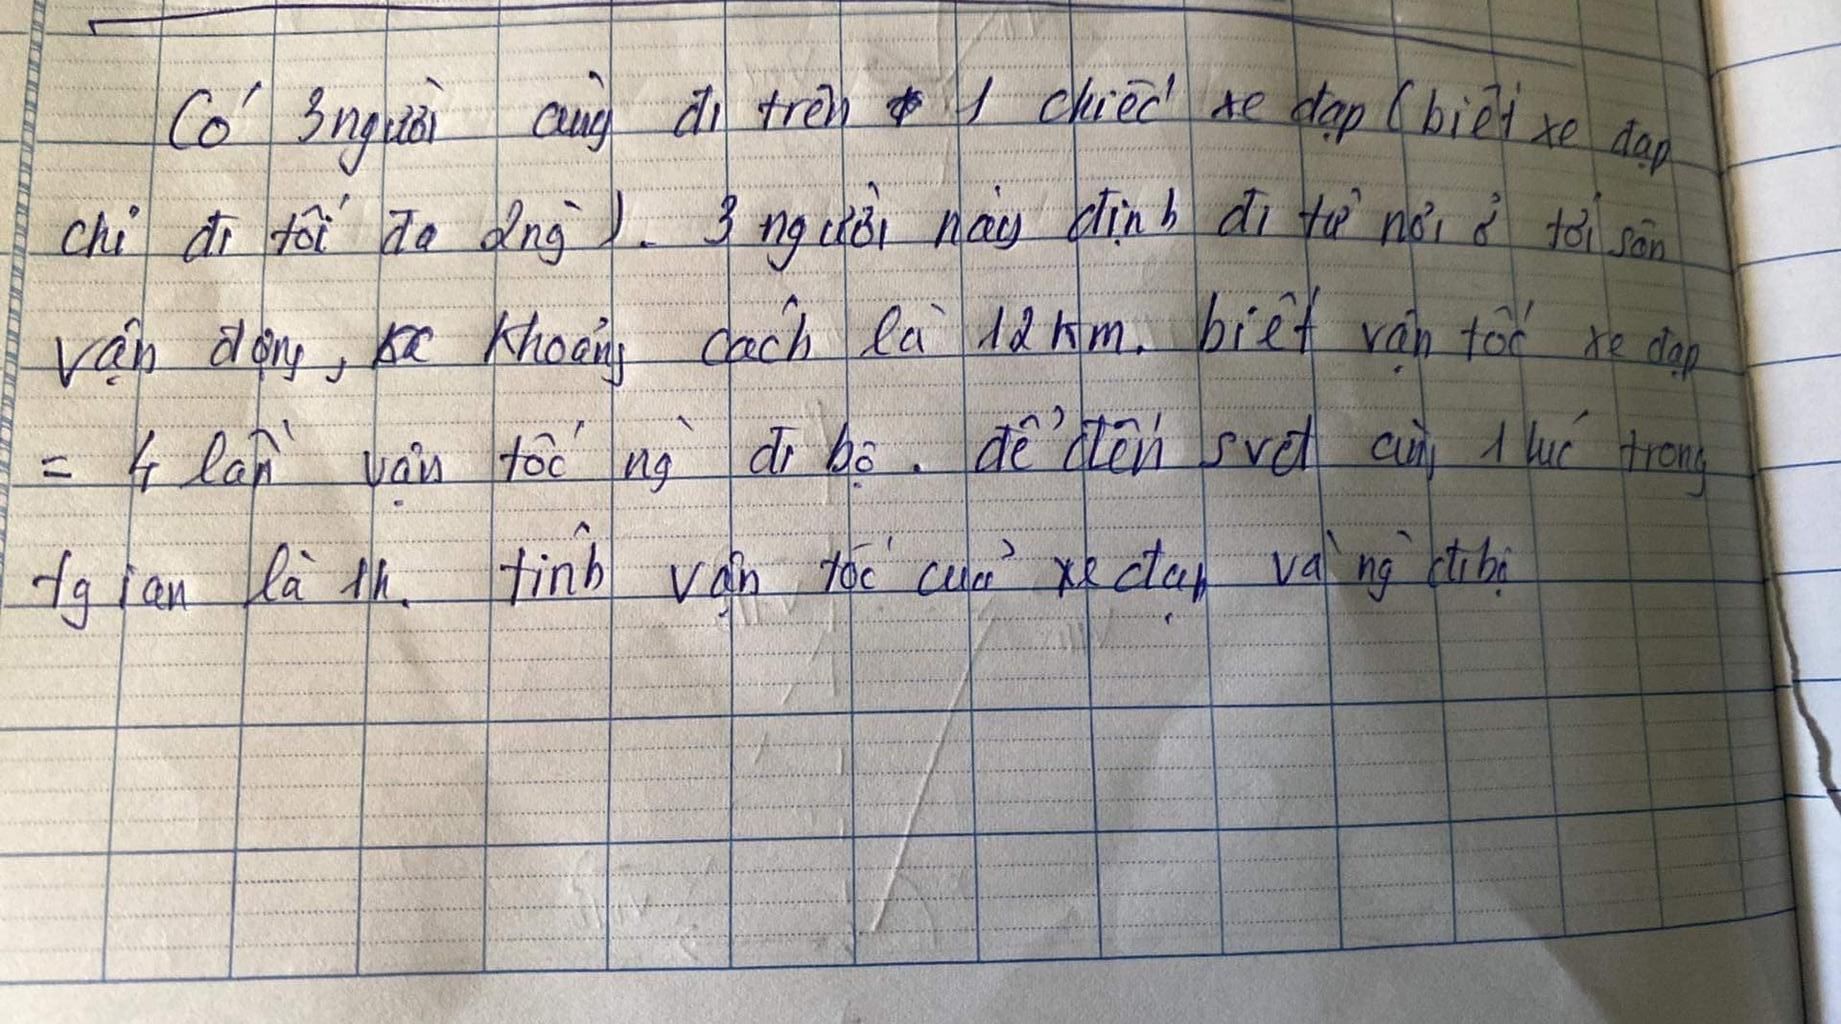 Có 3 người cùng đi trên 1 chiếc xe đạp (biết xe đạp
chỉ đi tối đa 2 ng`). 3 người này định đi từ nơi ở tới sân
vận động, khoảng cách là 12 km. biết vận tốc xe đạp
= 4 lần vận tốc ng` đi bộ. để đến svđ cùng 1 lúc trong
tgian là 1h. tính vận tốc của xe đạp và ng` đi bộ